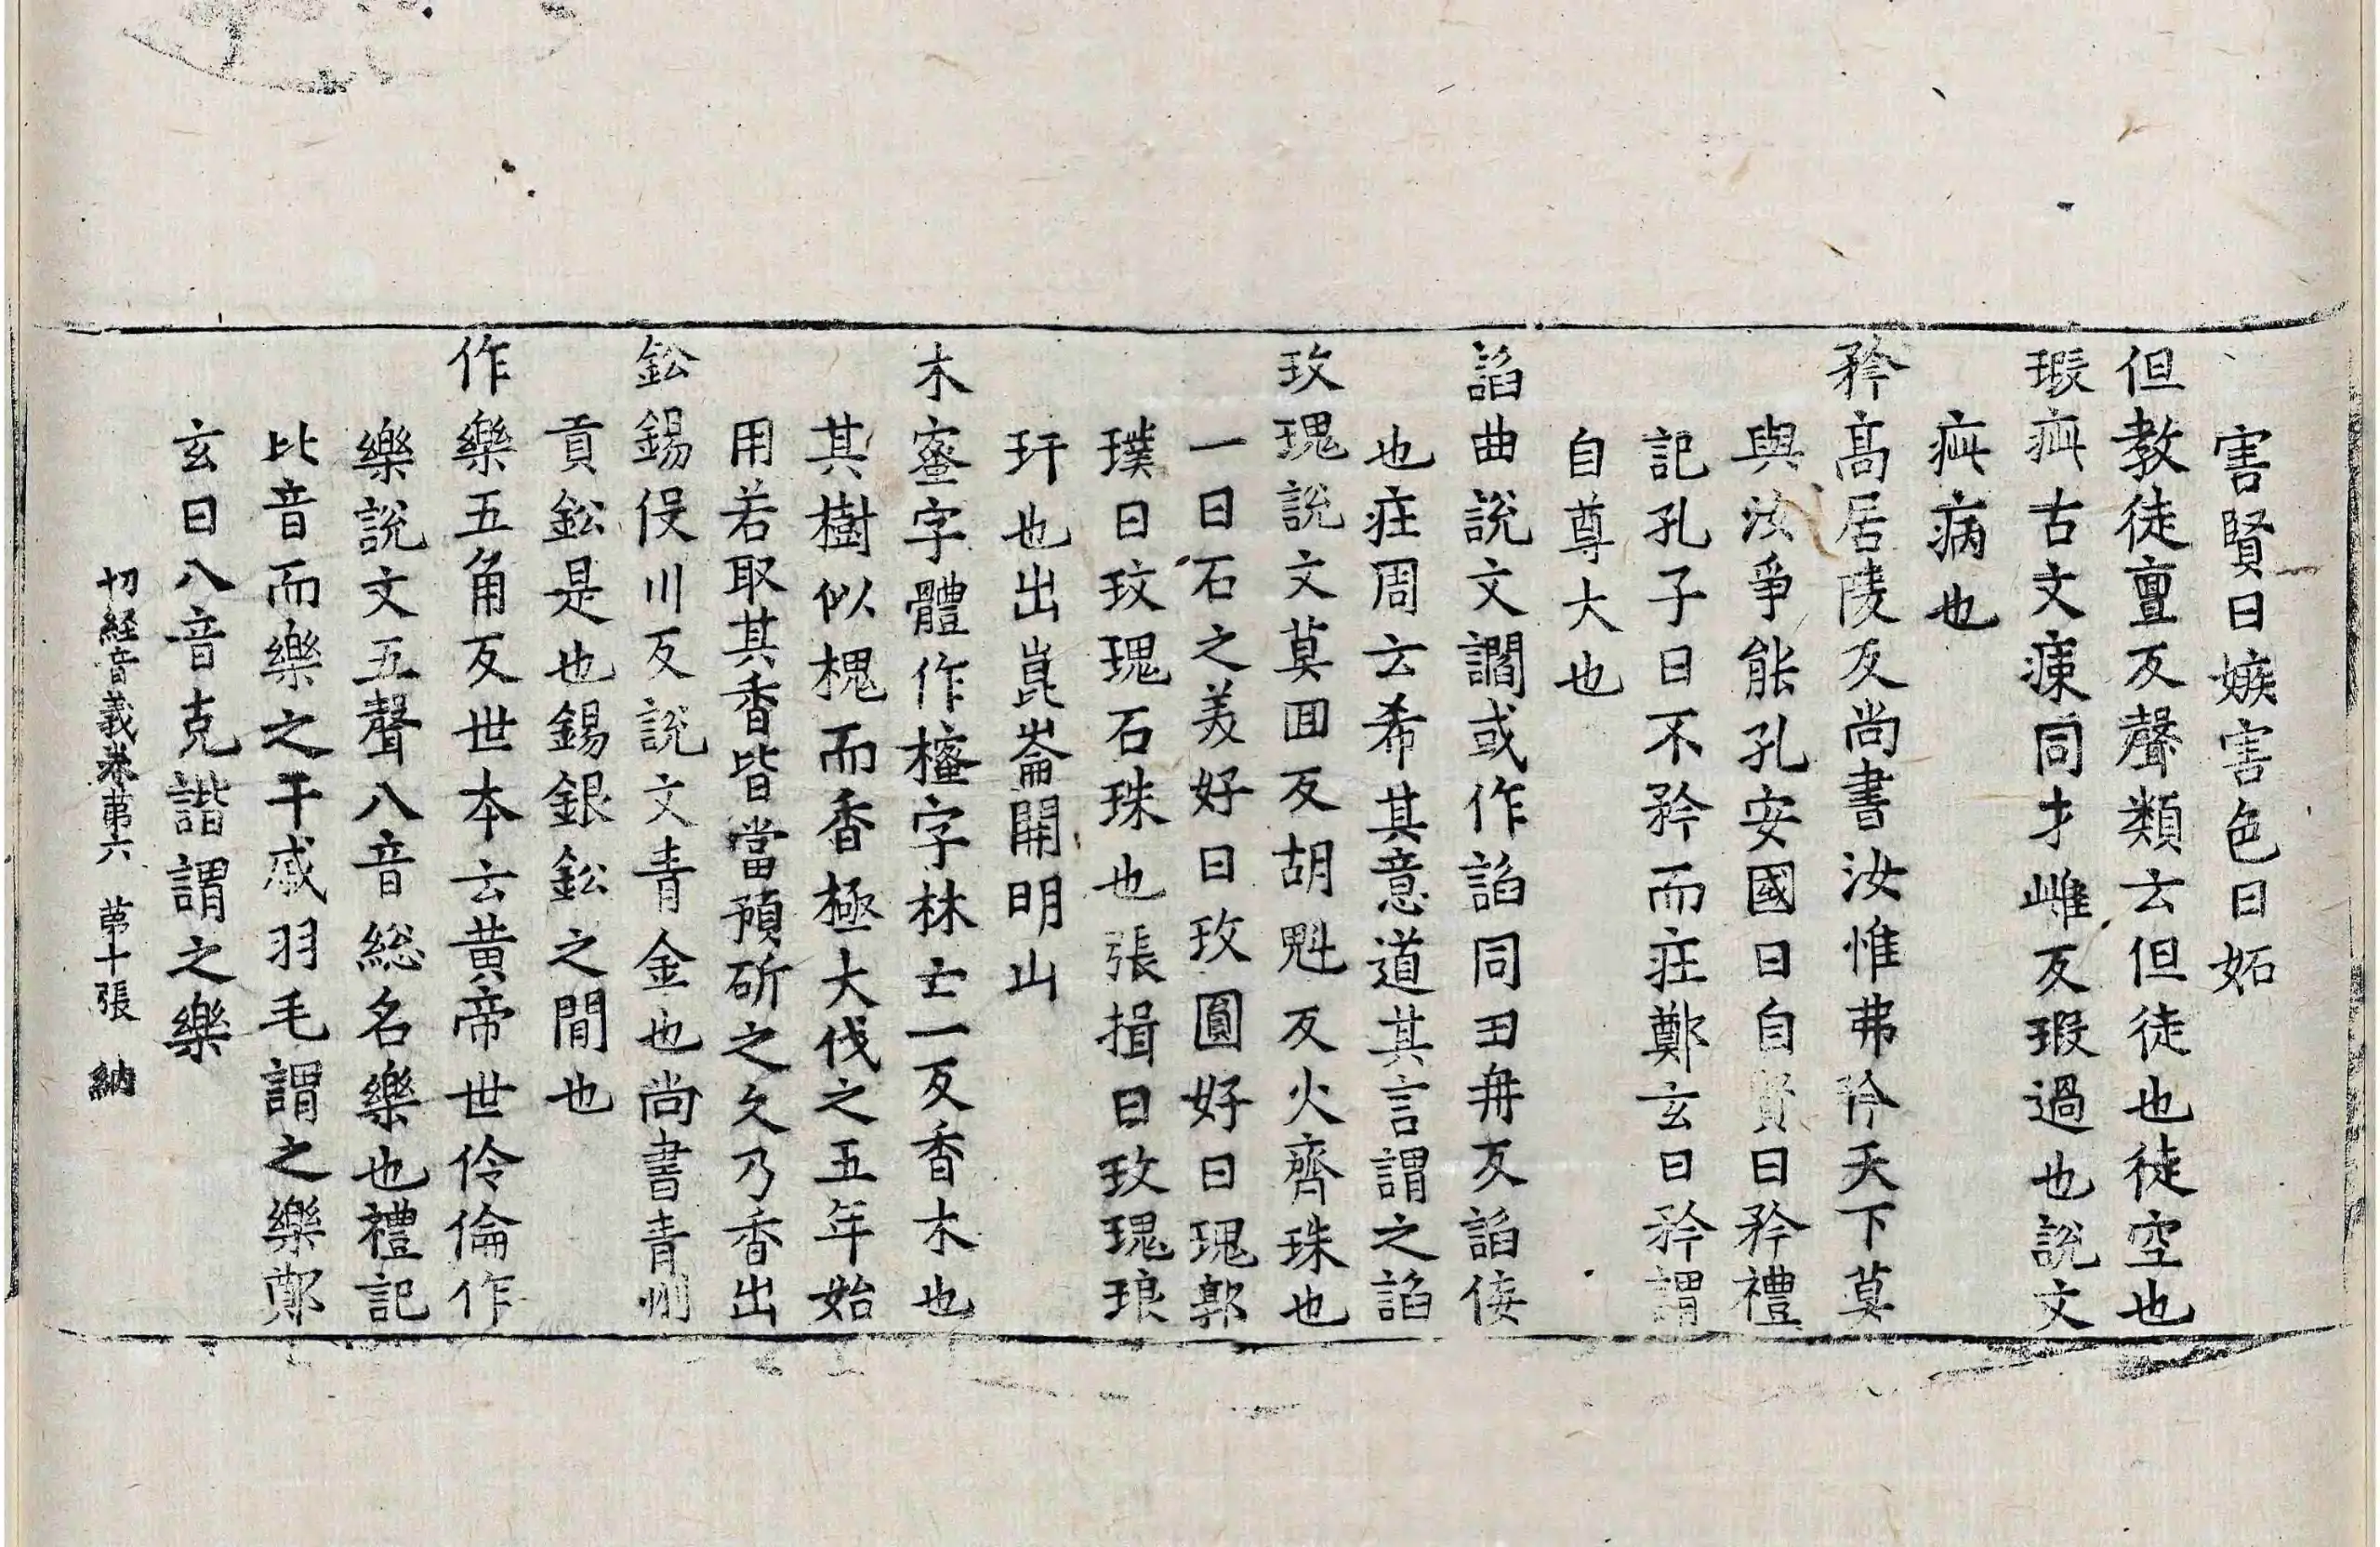 害賢曰嫉害色曰妬
但教徒亶反聲類云但徒也徒空也
瑕疵古文㾊同才雌反瑕過也說文
疵病也
矜高居陵反尚書汝惟弗矜天下莫
與汝爭能孔安國曰自賢曰矜禮
記孔子曰不矜而莊鄭玄曰矜謂
自尊大也
諂曲說文讇或作諂同丑冉反諂佞
也莊周云希其意道其言謂之諂
玫瑰說文莫回反胡魁反火齊珠也
一曰石之美好曰玫圓好曰瑰郭
璞曰玟瑰石珠也張揖曰玫瑰琅
玕也出崑崙開明山
木蜜字體作櫁字林亡一反香木也
其樹似槐而香極大伐之五年始
用若取其香皆當預斫之久乃香出
鈆錫役川反說文青金也尚書青州
貢鈆是也錫銀鈆之閒也
作樂五角反世本云黃帝世伶倫作
樂說文五聲八音総名樂也禮記
比音而樂之干戚羽毛謂之樂鄭
玄曰八音克諧謂之樂
切経音義卷苐六 苐十張 納